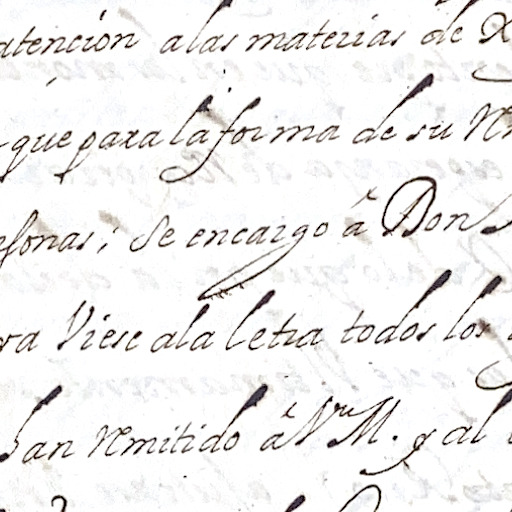 atencion alas materias de
que para la forma de su
sonas; se encargo â Don
Viese ala letra todos los
han Remitido â Vra M. y al